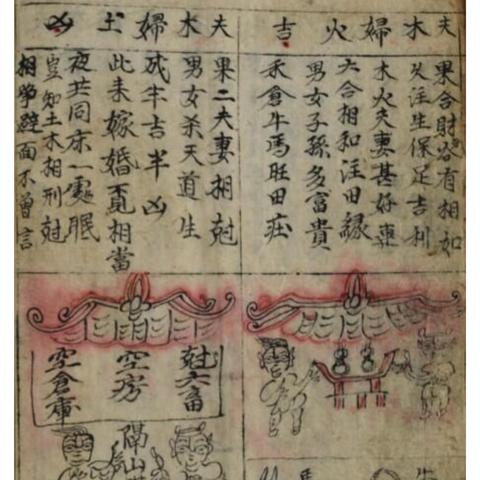 夫木婦火吉
果合財谷有相如
注生保足吉利
木火夫妻甚好
六合相和注田緣
男女子孫多富貴
禾倉牛馬旺田莊
夫木婦土凶
果二夫妻相尅
男女杀天道生
成半吉半凶
此来嫁婚覓相當
夜共同床一處眠
豈知土木相刑尅
相爭避面不曾言
尅六畜
空房
空倉庫
隔山